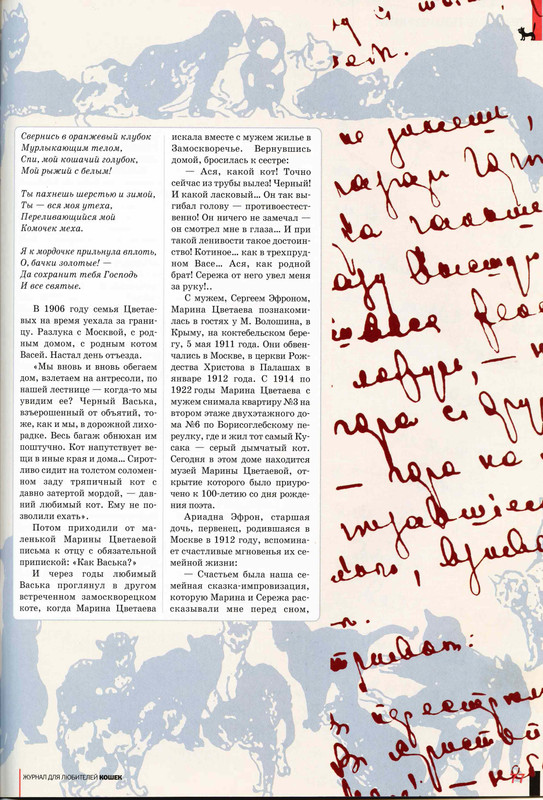 Свернись в оранжевый клубок
Мурлыкающим телом,
Спи, мой кошачий голубок,
Мой рыжий с белым!
Ты пахнешь шерстью и зимой,
Ты — вся моя утеха,
Переливающийся мой
Комочек меха.
Я к мордочке прильнула вплоть,
О, бачки золотые! —
Да сохранит тебя Господь
И все святые.
В 1906 году семья Цветае-
вых на время уехала за грани-
цу. Разлука с Москвой, с род-
ным домом, с родным котом
Васей. Настал день отъезда.
«Мы вновь и вновь обегаем
дом, взлетаем на антресоли, по
нашей лестнице — когда-то мы
увидим ее? Черный Васька,
взъерошенный от объятий, то-
же, как и мы, в дорожной лихо-
радке. Весь багаж обнюхан им
поштучно. Кот напутствует ве-
щи в иные края и дома... Сирот-
ливо сидит на толстом соломен-
ном заду тряпичный кот с
давно затертой мордой, — дав-
ний любимый кот. Ему не по-
зволили ехать».
Потом приходили от ма-
ленькой Марины Цветаевой
письма к отцу с обязательной
припиской: «Как Васька?»
И через годы любимый
Васька проглянул в другом
встреченном замоскворецком
коте, когда Марина Цветаева
искала вместе с мужем жилье в
Замоскворечье. Вернувшись
домой, бросилась к сестре:
— Ася, какой кот! Точно
сейчас из трубы вылез! Черный!
И какой ласковый... Он так вы-
гибал голову — противоестест-
венно! Он ничего не замечал —
он смотрел мне в глаза... И при
такой ленивости такое достоин-
ство! Котиное... как в трехпруд-
ном Васе... Ася, как родной
брат! Сережа от него увел меня
за руку!..
С мужем, Сергеем Эфроном,
Марина Цветаева познакоми-
лась в гостях у М. Волошина, в
Крыму, на коктебельском бере-
гу, 5 мая 1911 года. Они обвен-
чались в Москве, в церкви Рож-
дества Христова в Палашах в
январе 1912 года. С 1914 по
1922 годы Марина Цветаева с
мужем снимала квартиру №3 на
втором этаже двухэтажного до-
ма №6 по Борисоглебскому пе-
реулку, где и жил тот самый Ку-
сака — серый дымчатый кот.
Сегодня в этом доме находится
музей Марины Цветаевой, от-
крытие которого было приуро-
чено к 100-летию со дня рожде-
ния поэта.
Ариадна Эфрон, старшая
дочь, первенец, родившаяся в
Москве в 1912 году, вспомина-
ет счастливые мгновенья их се-
мейной жизни:
— Счастьем была наша се-
мейная сказка-импровизация,
которую Марина и Сережа рас-
сказывали мне перед сном,
ЖУРНАЛ ДЛЯ ЛЮБИТЕЛЕЙ КОШЕК